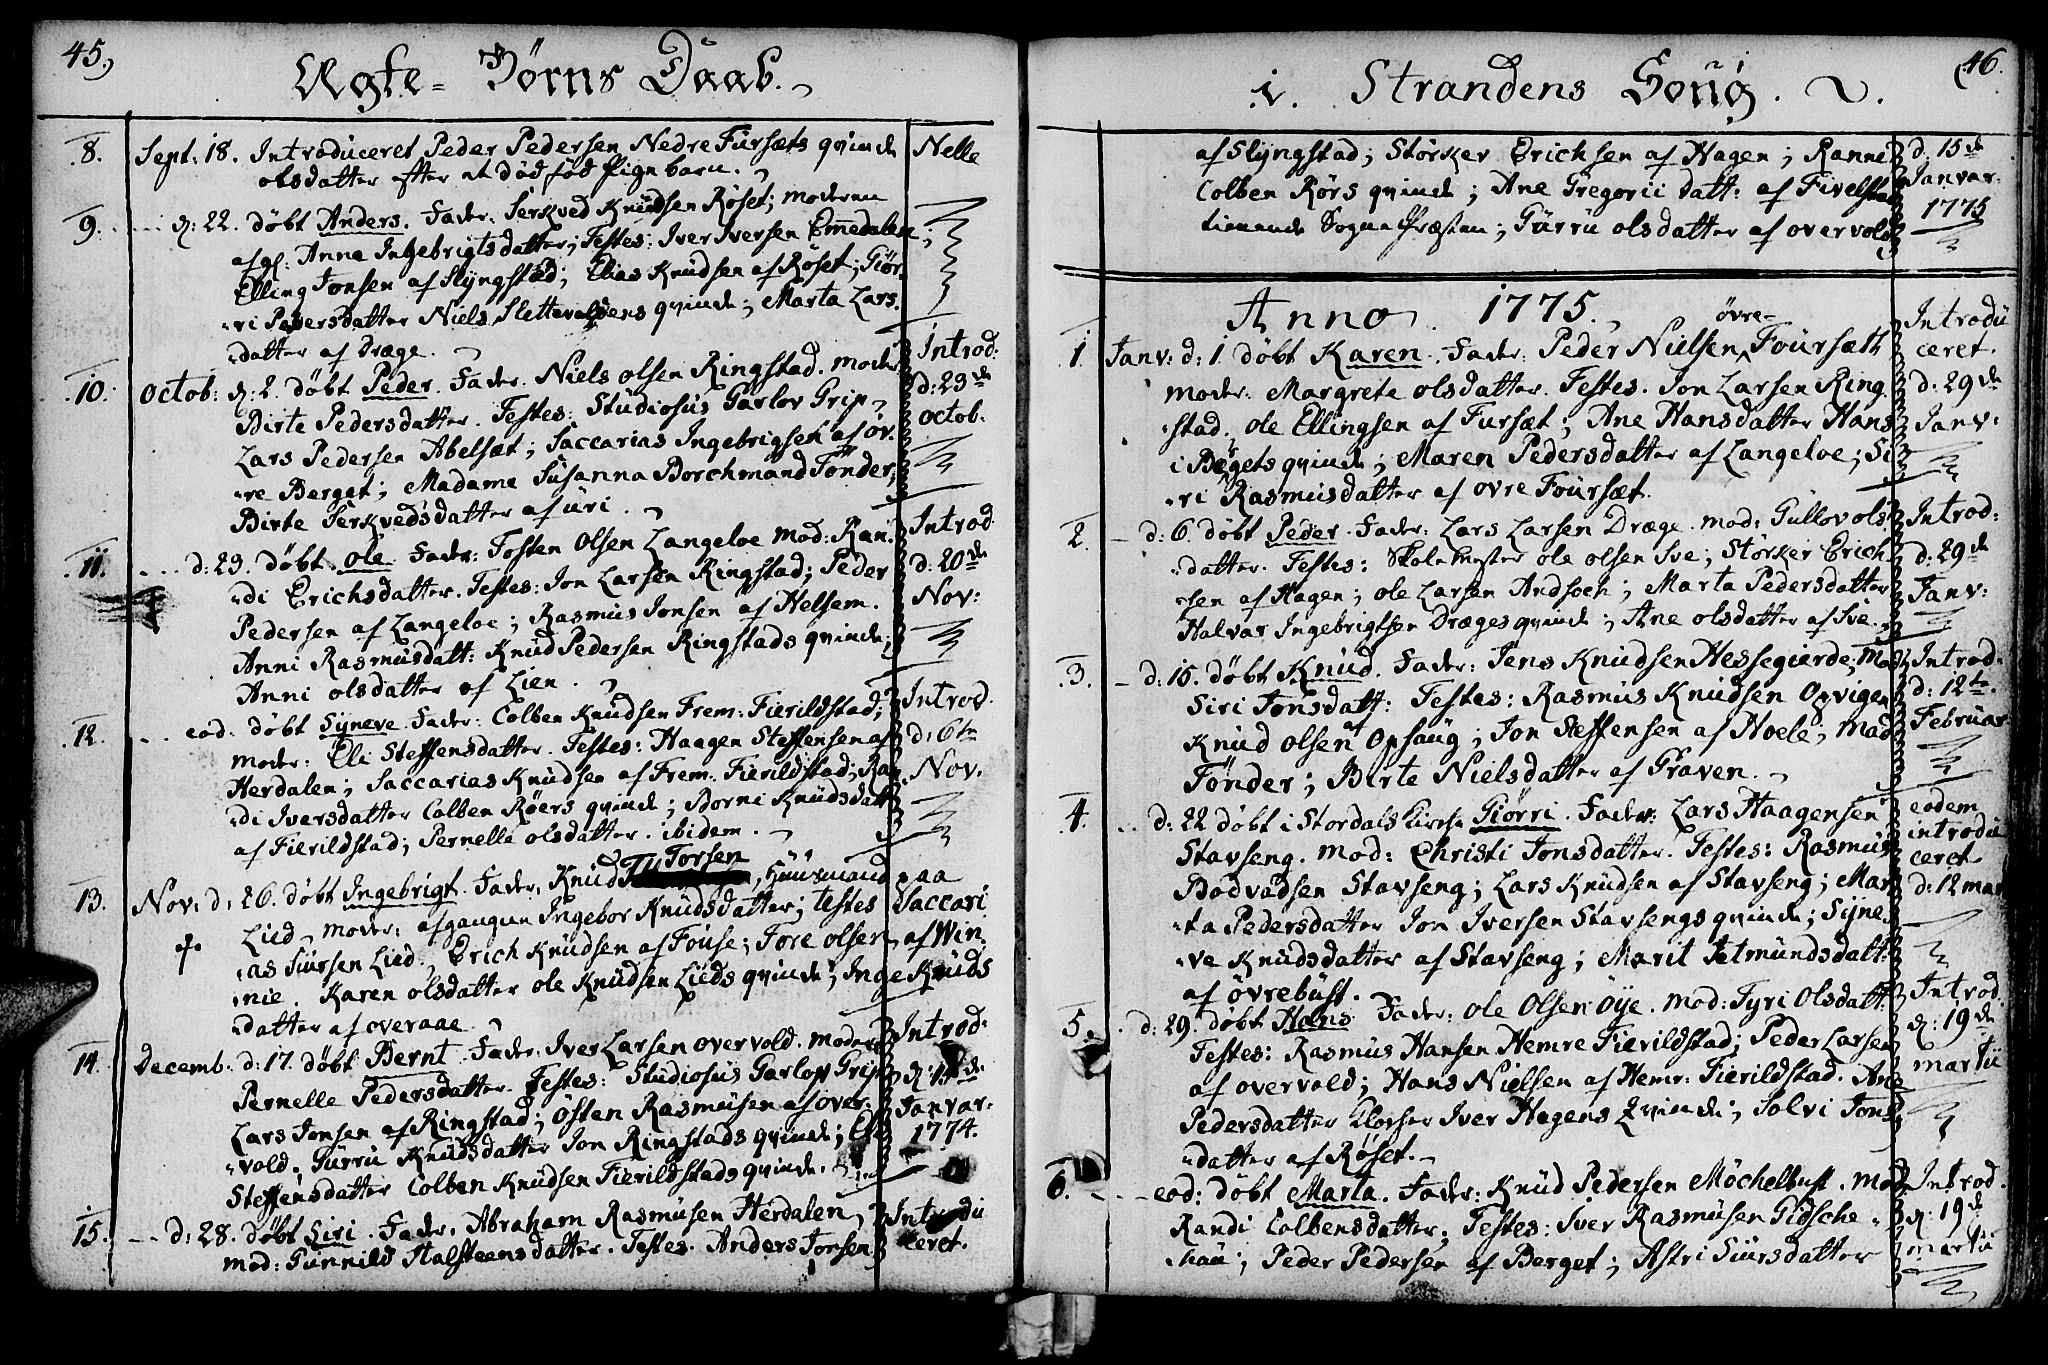 45.
Ægte-Börns Daab.
8. Sept: 18. Introduceret Peder Pedersen Nedre Fursæts qvinde Nelle
olsdatter efter et död föd Pigebarn.
9. d: 22. döbt Anders. Fader: Serkved Knudsen Röset; moderen
afg: Anne Ingebrigtsdatter; Testes: Iver Iversen Emmedalen;
Elling Jonsen af Slyngstad; Elias Knudsen af Röset; Giör-
ri Pedersdatter Niels Slettevoldens qvinde; Marta Lars-
datter af Dræge.
10. Octob: d: 2. döbt Peder. Fader: Niels olsen Ringstad. moder Introd:
Birte Pedersdatter. Testes: Studiosus Garlov Grip d: 23de
Lars Pedersen Abelsæt; Saccarias Ingebrigsen af öv- Octob:
re Berget; Madame Susanna Borchmand Tönder;
Birte Serkvedsdatter af uri.
11. d: 23. döbt ole. Fader: Tosten Olsen Langeloe mod: Ran- Introd
di Erichsdatter. Testes: Jon Larsen Ringstad; Peder d: 20de
Pedersen af Langeloe; Rasmus Jonsen af Helsem. Nov:
Anni Rasmusdatt: Knud Pedersen Ringstads qvinde;
Anni olsdatter af Lien.
12. eod: döbt Syneve. Fader: Colben Knudsen Frem: Fierildstad; Introd.
moder: Eli Steffensdatter. Testes: Haagen Steffensen af d: 6te
Herdalen; Saccarias Knudsen af Frem. Fierildstad; Ran- Nov:
di Iversdatter Colben Röers qvinde; Borni Knudsdatt
af Fierildstad; Pernelle olsdatter ibidem.
13. Nov: d: 26. döbt Ingebrigt. Fader: Knud Torsen, Huusmand paa
Lied moder: afgangen Ingebor Knudsdatter; testes Saccari-
as Siursen Lied, Erich Knudsen af Fouse; Tore olsen af Win-
nie. Karen olsdatter ole Knudsen Lieds qvinde; Inge Knuds
datter af overaae.
14. Decemb. d: 17. döbt Bernt. Fader: Iver Larsen overvold. moder Introd:
Pernelle Pedersdatter. Testes: Studiosus Garlop Grip
Lars Jonsen af Ringstad; östen Rasmusen af over- Janvar.
vold. Gurru Knudsdatter Jon Ringstads qvinde; Eli 1774.
Steffensdatter Colben Knudsen Fierildstads qvinde.
15. d: 28. döbt Siri. Fader. Abraham Rasmusen Herdalen, Introdu
mod: Gunnild Halsteensdatter. Testes. Anders Jonsen ceret.
46.
i. Strandens Sougn.
af Slyngstad; Störker Erichsen af Hagen; Ranne d. 15de
Colben Rörs qvinde; Ane Gregorii datt: af Fivelstad Janvar.
tienende Sogne Præsten; Gurru olsdatter af overvold 1775
Anno. 1775.
1 Janv: d: 1. döbt Karen. Fader: Peder Nielsen övre- Foursæth Introdu
moder. Margrete olsdatter. Testes. Jon Larsen Ring- ceret.
stad. ole Ellingsen af Fursæt; Ane Hansdatter Hans d: 29de
i Bögets qvinde; Maren Pedersdatter af Langeloe; Si- Janv:
ri Rasmusdatter af ovre Foursæt.
2. d. 6. döbt Peder. Fader: Lars Larsen Dræge. mod: Gullov ols- Introd:
datter. Testes: Skolemester ole olsen Sve; Störker Erich- d: 29de
sen af Hagen; ole Larsen Andsoch; Marta Pedersdatter Janv:
Halvar Ingebrigtsen Dræges qvinde; Ane olsdatter af Sve.
3. d: 15. döbt Knud. Fader: Jens Knudsen Hessegierde; Mod Introd.
Siri Jonsdatt: Testes: Rasmus Knudsen Opvigen d: 12te.
Knud olsen af Opsaug; Jon Steffensen af Noele; Mad Februar
Tönder; Birte Nielsdatter af Graven.
4. d: 22 döbt i Stordals Kirche Giörri. Fader: Lars Haagensen eodem
Stavseng. mod: Christi Jonsdatter. Testes: Rasmus introdu
Bodvadsen Stavseng; Lars Knudsen af Stavseng; Mar- ceret
ta Pedersdatter Jon Iversen Stavsengs qvinde; Syne- d: 12 mar
ve Knudsdatter af Stavseng; Marit Jetmundsdatt:
af övrebust.
5. d: 29. döbt Hans Fader: ole Olsen öye. mod: Tyri Olsdatt: Introd.
Testes: Rasmus Hansen Hemre Fierildstad; Peder Larsen d: 19de
af overvold; Hans Nielsen af Hemr: Fierildstad. Ane martii
Pedersdatter Klocker Iver Hagens Qvinde; Solvi Jons-
datter af Röset.
6. eod: döbt Marta. Fader: Knud Pedersen Möchelbust. Mod Introd.
Randi Colbensdatter; Testes: Iver Rasmusen Gidsche- d: 19de
hau; Peder Pedersen af Berget; Astri Siursdatter martii